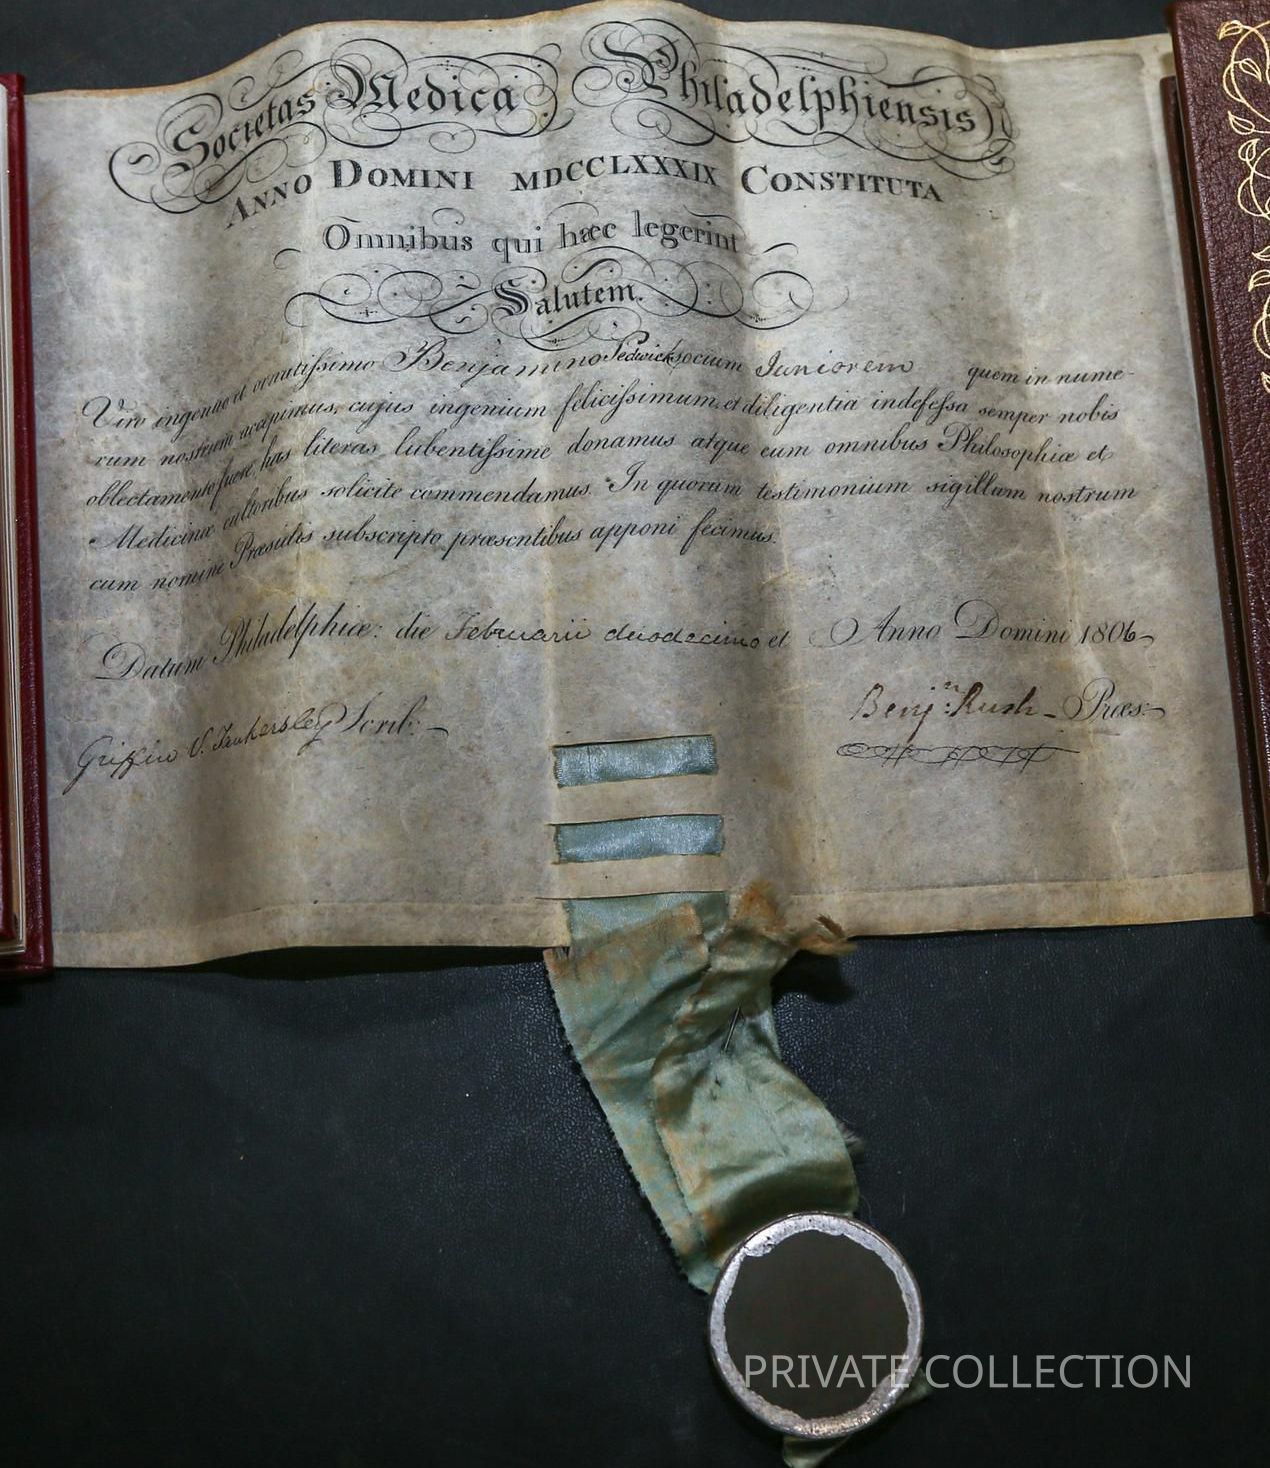 Societas Medica Philadelphiensis
Anno Domini MDCCLXXXIX Constituta
Omnibus qui hæc legerint
Salutem.
Viro ingenuo et ornatissimo Benjamino socium Juniorem quem in nume-
rum nostrum accepimus, cujus ingenium felicissimum et diligentia indefessa semper nobis
oblectamento fuere, has literas lubentissime donamus atque eum omnibus Philosophiæ et
Medicinæ cultoribus solicite commendamus. In quorum testimonium sigillum nostrum
cum nomine Præsidis subscripto præsentibus apponi fecimus.
Datum Philadelphiæ: die Februarii duodecimo et Anno Domini 1806
Griffin Scrib:
Benjn: Rush - Præs:
PRIVATE COLLECTION